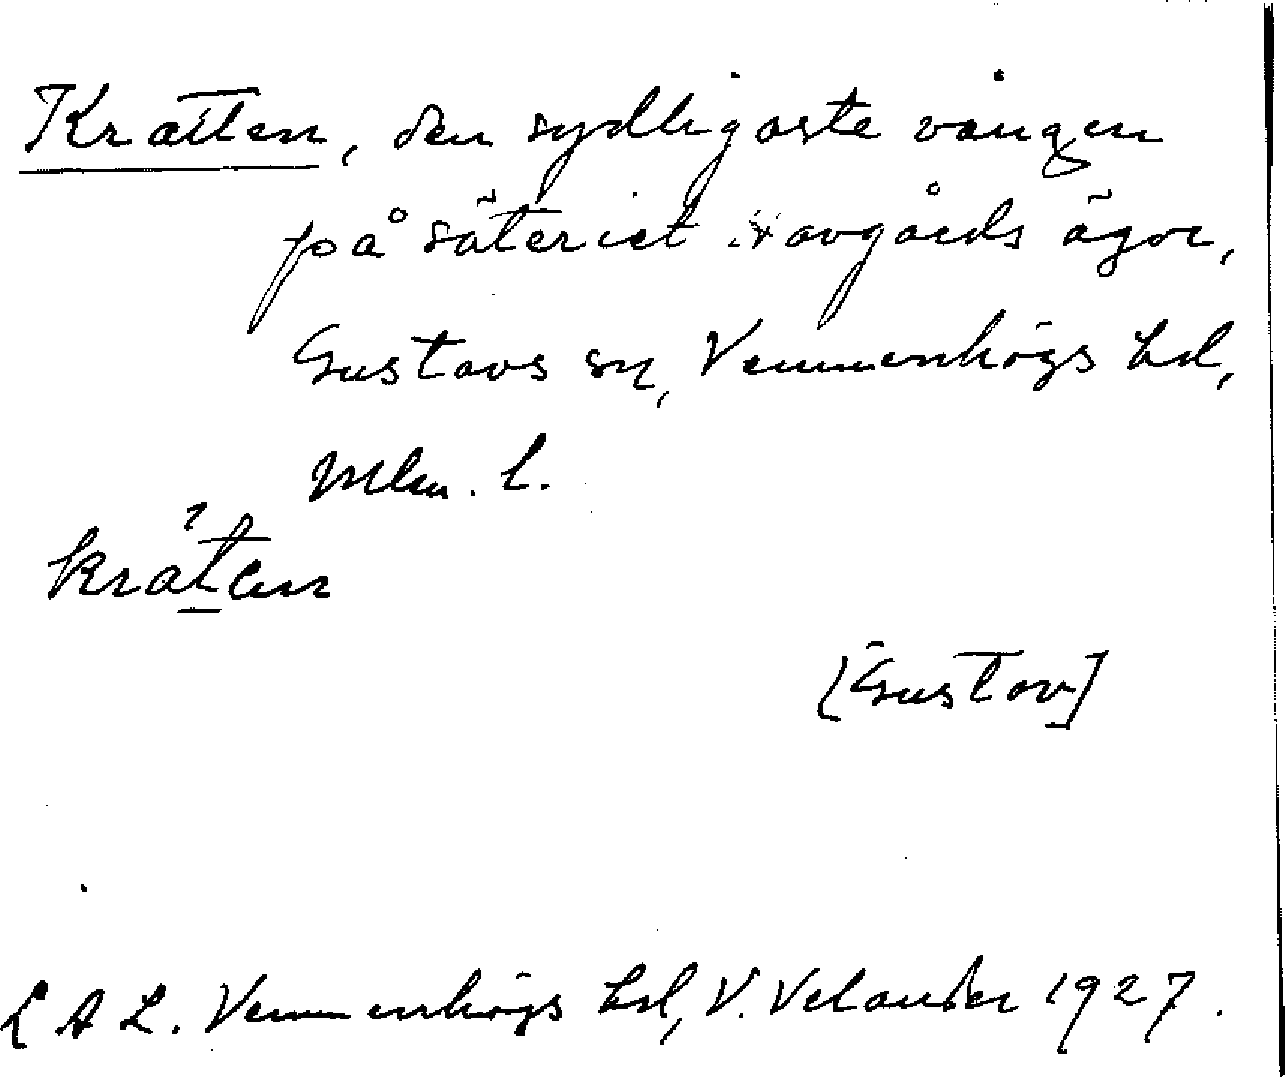 Krätten, den sydligaste vången
på säteriet Navgårds ägor,
Gustavs sn, Vemmenhögs hd,
Mlm. l.
kräten
[Gustav]
L A L. Vemmenhögs hd, V. Velander 1927.